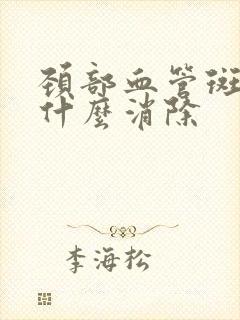 頸部血管斑
什麼消除
李海松